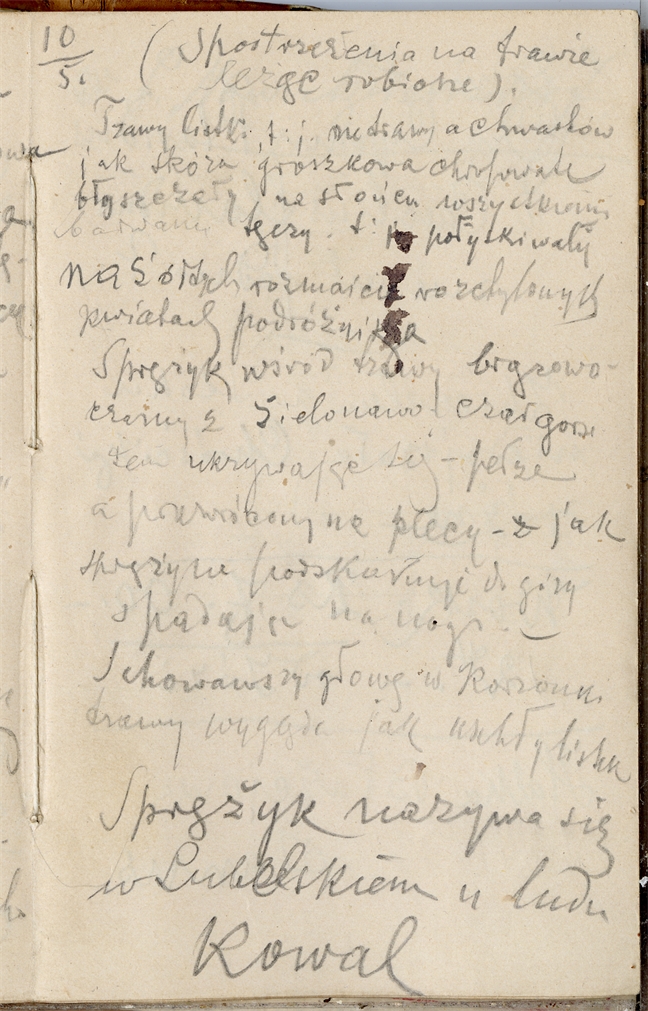 10
5.
(Spostrzeżenia na trawie
leżąc robione).
Trawy listki t.j. nie trawy a chwastów
jak skóra groszkowa chropowate
błyszczały, na słońcu wszystkiemi
barwami tęczy. t.j. połyskiwały
na żółtych rozmaicie rozchylonych
kwiatach podróżnika
Sprężyk wśród trawy brązowo-
czarny z zielonawo-
ukrywając się - pełza
a przewrócony na plecy - z jak
sprężyna podskakuje do góry
spadając na nogi. -
Schowawszy głowę w korzonki
trawy wygląda jak uschły listek
Sprężyk nazywa się
w Lubelskiem u ludu
Kowal